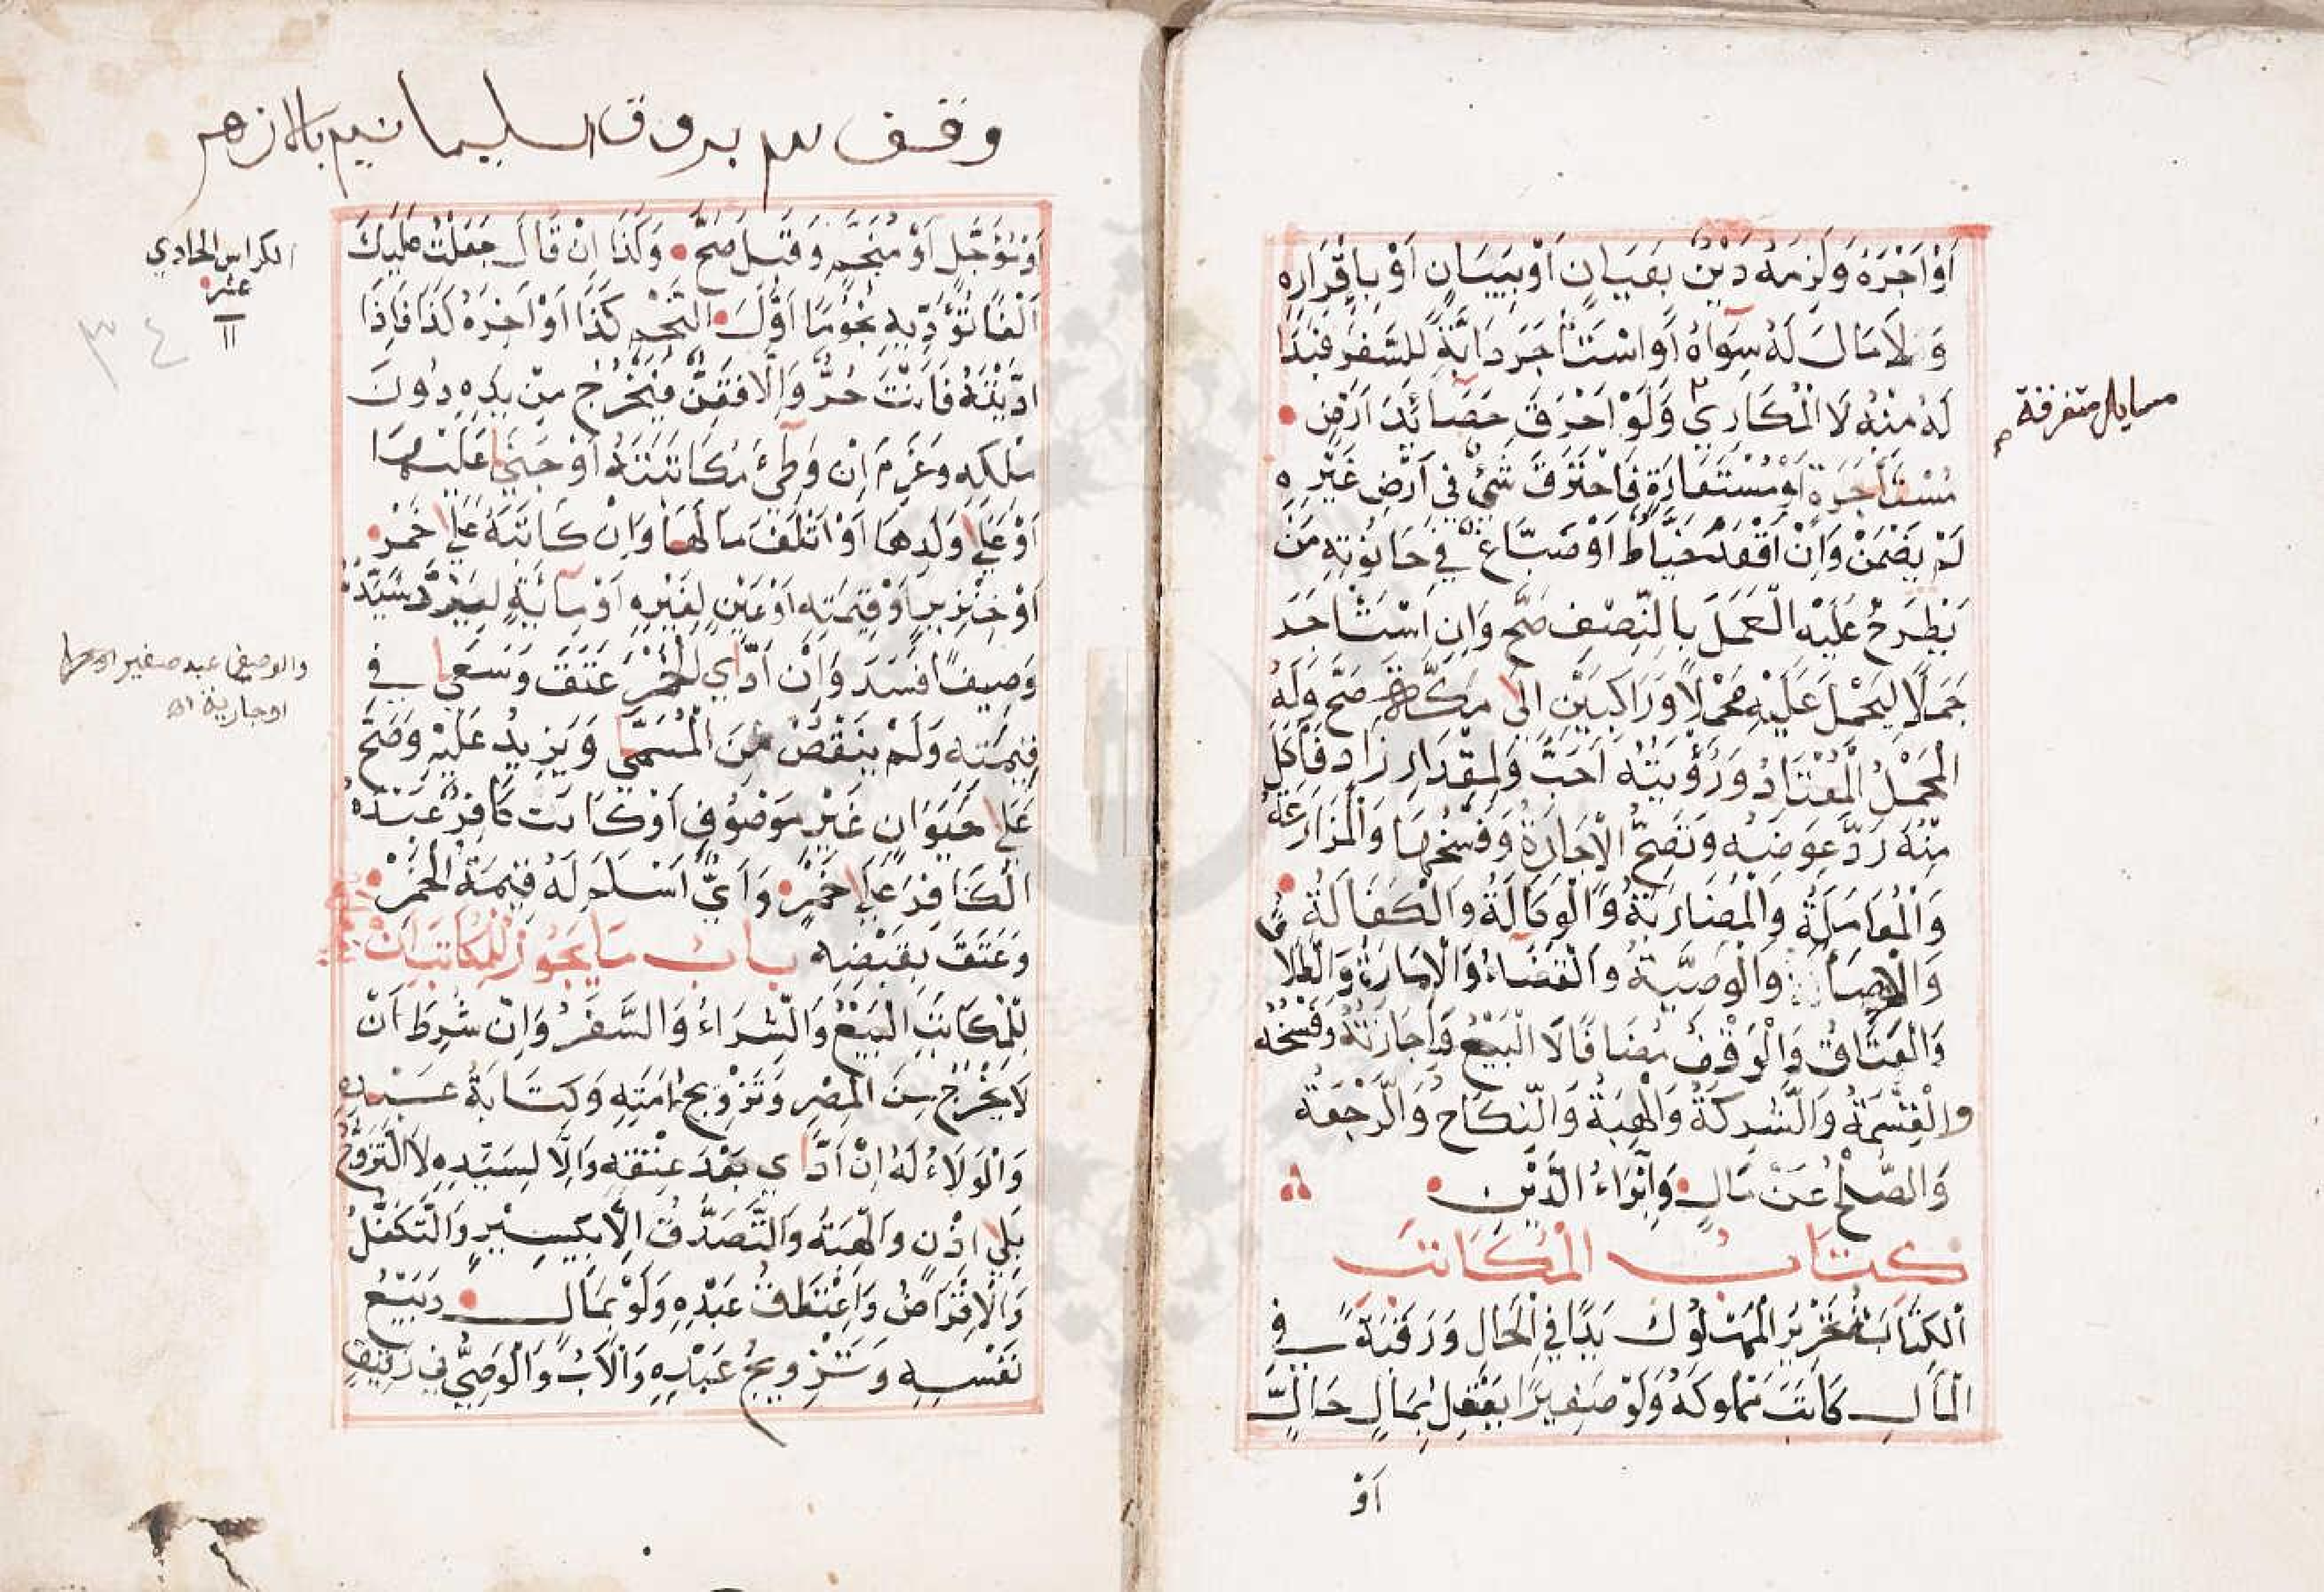 أَوْ آجَرَهُ وَلَزِمَهُ دَيْنٌ بِعَيَانٍ أَوْ بِبَيَانٍ أَوْ بِإِقْرَارِهِ
وَلَا مَالَ لَهُ سِوَاهُ أَوِ اسْتَأْجَرَ دَابَّةً لِلسَّفَرِ فَبَدَا
لَهُ مِنْهُ لَا الْمُكَارِي وَلَوْ أَحْرَقَ حَصَائِدَ أَرْضٍ
مُسْتَأْجَرَةٍ أَوْ مُسْتَعَارَةٍ فَاحْتَرَقَ شَيْءٌ فِي أَرْضِ غَيْرِهِ
لَمْ يَضْمَنْ وَإِنْ أَقْعَدَ خَيَّاطٌ أَوْ صَبَّاغٌ فِي حَانُوتِهِ مَنْ
يَطْرَحُ عَلَيْهِ الْعَمَلَ بِالنِّصْفِ صَحَّ وَإِنِ اسْتَأْجَرَ
جَمَلًا لِيَحْمِلَ عَلَيْهِ مَحْمِلًا وَرَاكِبَيْنِ إِلَى مَكَّةَ صَحَّ وَلَهُ
الْمَحْمِلُ الْمُعْتَادُ وَرُؤْيَتُهُ أَحَبُّ وَلِمِقْدَارِ زَادٍ فَأَكَلَ
مِنْهُ رَدَّ عِوَضِهِ وَتَصِحُّ الْإِجَارَةُ وَفَسْخُهَا وَالْمُزَارَعَةُ
وَالْمُعَامَلَةُ وَالْمُضَارَبَةُ وَالْوَكَالَةُ وَالْكَفَالَةُ
وَالْإِيصَاءُ وَالْوَصِيَّةُ وَالْقَضَاءُ وَالْإِمَارَةُ وَالطَّلَاقُ
وَالْعِتَاقُ وَالْوَقْفُ مُضَافًا لَا الْبَيْعُ وَإِجَازَتُهُ وَفَسْخُهُ
وَالْقِسْمَةُ وَالشَّرِكَةُ وَالْهِبَةُ وَالنِّكَاحُ وَالرَّجْعَةُ
وَالصُّلْحُ عَنْ مَالٍ وَإِبْرَاءُ الدَّيْنِ
كِتَابُ الْمُكَاتَبِ
الْكِتَابَةُ تَحْرِيرُ الْمَمْلُوكِ يَدًا فِي الْحَالِ وَرَقَبَةً فِي
الْمَالِ كَاتَبَ مَمْلُوكَهُ وَلَوْ صَغِيرًا يَعْقِلُ بِمَالٍ حَالٍّ
أَوْ
مسايل متفرقة
وقف سم بروق السليمانيه بالازهر
أَوْ مُؤَجَّلٍ أَوْ مُنَجَّمٍ وَقَبِلَ صَحَّ وَكَذَا إِنْ قَالَ جَعَلْتُ عَلَيْكَ
أَلْفًا تُؤَدِّيهِ نُجُومًا أَوَّلَ النَّجْمِ كَذَا أَوْ آخِرَهُ كَذَا فَإِذَا
أَدَّيْتَهُ فَأَنْتَ حُرٌّ وَإِلَّا فَقِنٌّ فَيَخْرُجُ مِنْ يَدِهِ دُونَ
مِلْكِهِ وَغَرِمَ إِنْ وَطِئَ مُكَاتَبَتَهُ أَوْ جَنَى عَلَيْهَا
أَوْ عَلَى وَلَدِهَا أَوْ أَتْلَفَ مَالَهَا وَإِنْ كَاتَبَهُ عَلَى خَمْرٍ
أَوْ خِنْزِيرٍ أَوْ قِيمَتِهِ أَوْ عَيْنٍ لِغَيْرِهِ أَوْ مِائَةٍ لِيَرُدَّ سَيِّدُهُ
وَصِيفًا فَسَدَ وَإِنْ أَدَّى الْخَمْرَ عَتَقَ وَسَعَى فِي
قِيمَتِهِ وَلَمْ يَنْقُصْ مِنَ الْمُسَمَّى وَيَزِيدُ عَلَيْهِ وَصَحَّ
عَلَى حَيَوَانٍ غَيْرِ مَوْصُوفٍ أَوْ كَاتَبَ كَافِرٌ عَبْدَهُ
الْكَافِرَ عَلَى خَمْرٍ وَأَيٌّ أَسْلَمَ لَهُ قِيمَةُ الْخَمْرِ
وَعَتَقَ بِقَبْضِهِ بَابُ مَا يَجُوزُ لِلْمُكَاتَبِ أَنْ
لِلْمُكَاتَبِ الْبَيْعُ وَالشِّرَاءُ وَالسَّفَرُ وَإِنْ شَرَطَ أَنْ
لَا يَخْرُجَ مِنَ الْمِصْرِ وَتَزْوِيجُ أَمَتِهِ وَكِتَابَةُ عَبْدِهِ
وَالْوَلَاءُ لَهُ إِنْ أَدَّى بَعْدَ عِتْقِهِ وَإِلَّا لِسَيِّدِهِ لَا التَّزَوُّجُ
بِلَا إِذْنٍ وَالْهِبَةُ وَالتَّصَدُّقُ إِلَّا بِيَسِيرٍ وَالتَّكَفُّلُ
وَالْإِقْرَاضُ وَإِعْتَاقُ عَبْدِهِ وَلَوْ بِمَالٍ وَبَيْعُ
نَفْسِهِ وَتَزْوِيجُ عَبْدِهِ وَالْأَبُ وَالْوَصِيُّ فِي رَقِيقِ
الكراس الحادي
عشر
١١
٣٤
والوصيف عبد صغير
او جارية اه